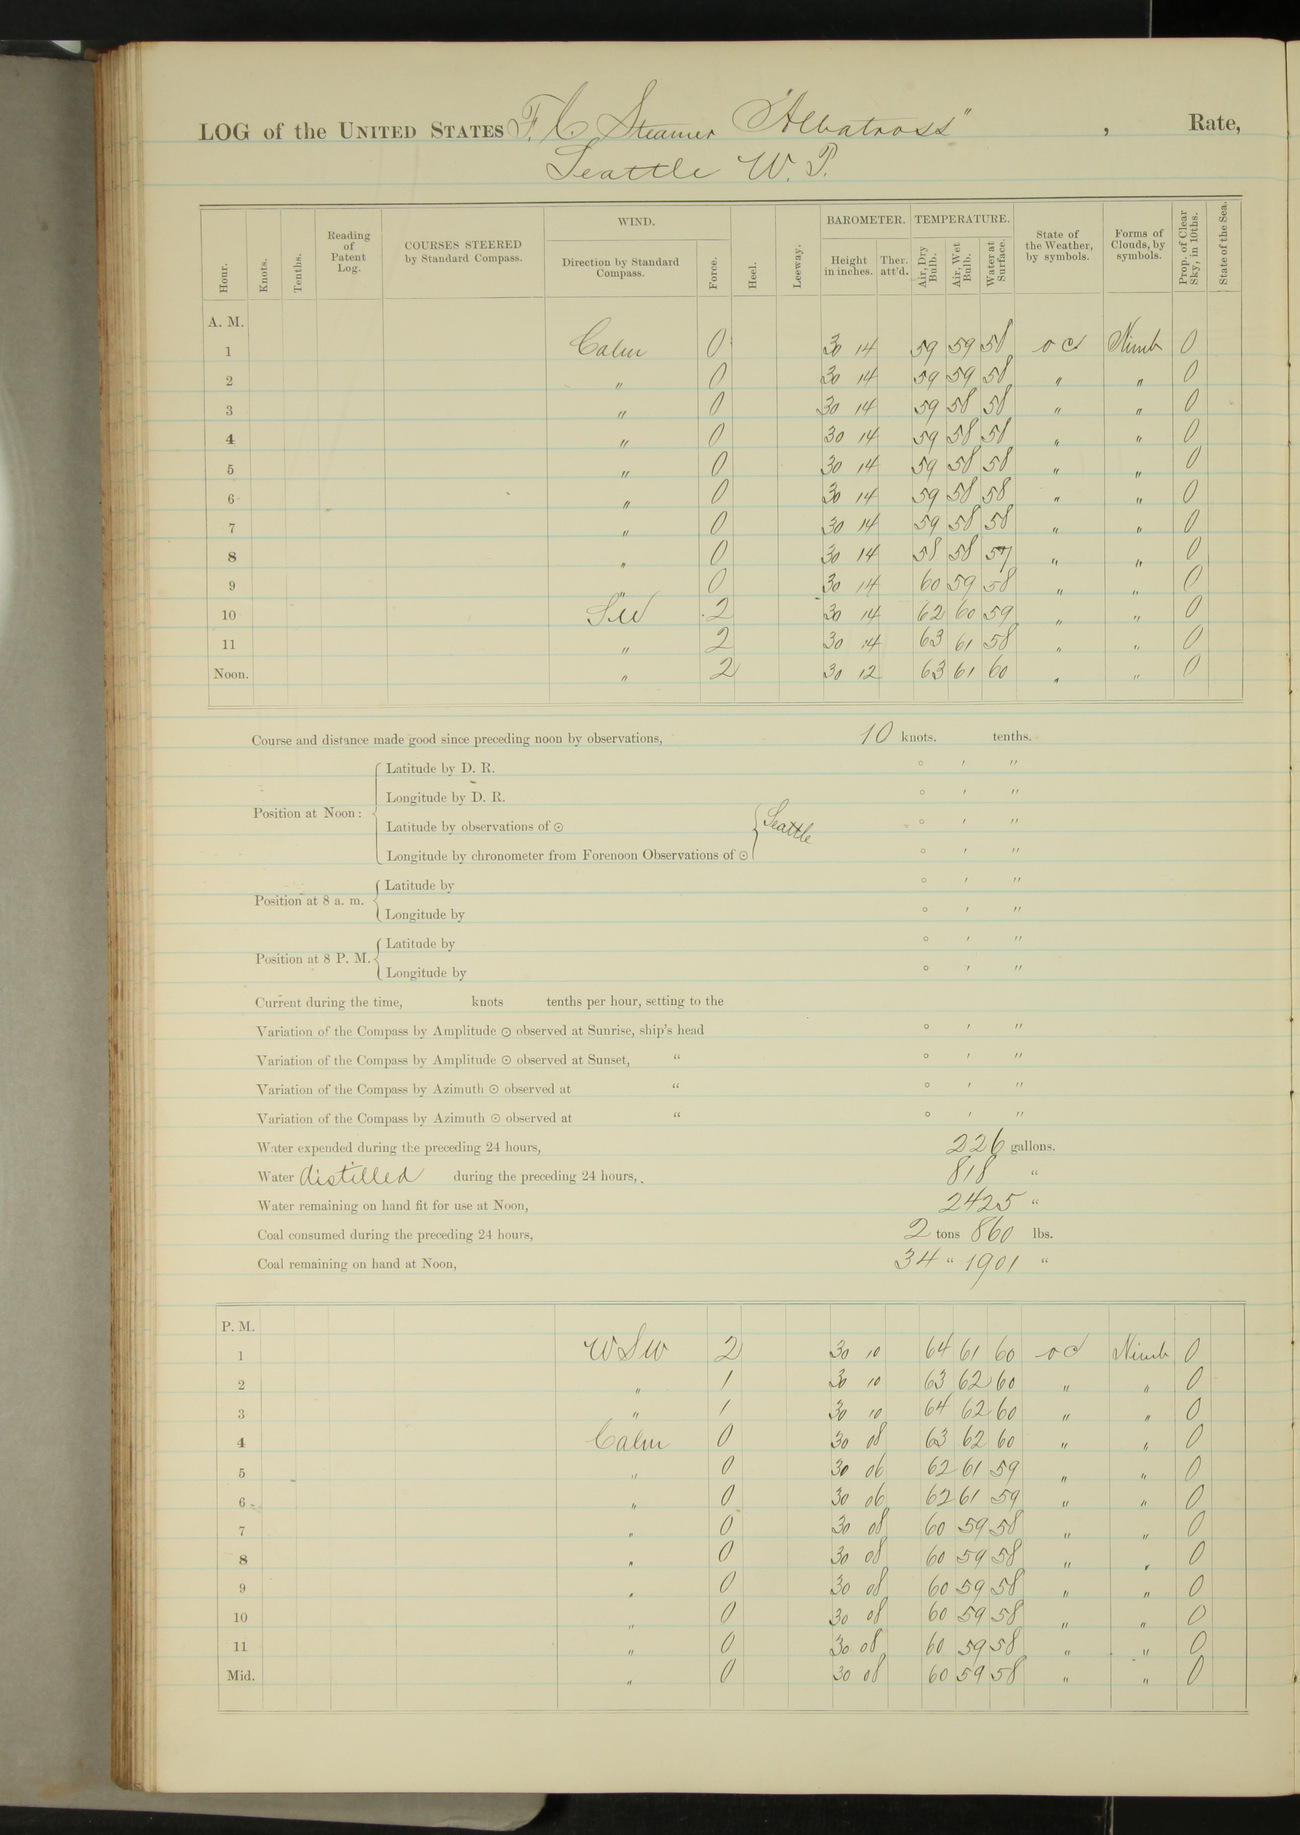 LOG of the UNITED STATES F. C. Steamer "Albatross", Rate,
Seattle W. T.
Hour. Knots. Tenths. Reading of Patent Log. COURSES STEERED by Standard Compass. WIND. Direction by Standard Compass. Force. Heel. Leeway. BAROMETER. Height in inches. Ther. att'd. TEMPERATURE. Air, Dry Bulb. Air, Wet Bulb. Water at Surface. State of the Weather, by symbols. Forms of Clouds, by symbols. Prop. of Clear Sky, in 10ths. State of the Sea.
A. M.
1 Calm 0 30 14 59 59 58 o c Nimb 0
2 " 0 30 14 59 59 58 " " 0
3 " 0 30 14 59 58 58 " " 0
4 " 0 30 14 59 58 58 " " 0
5 " 0 30 14 59 58 58 " " 0
6 " 0 30 14 59 58 58 " " 0
7 " 0 30 14 59 58 58 " " 0
8 " 0 30 14 58 58 57 " " 0
9 " 0 30 14 60 59 58 " " 0
10 SW 2 30 14 62 60 59 " " 0
11 " 2 30 14 63 61 58 " " 0
Noon. " 2 30 12 63 61 60 " " 0
Course and distance made good since preceding noon by observations, 10 knots. tenths.
Latitude by D. R. ° ' "
Longitude by D. R. ° ' "
Position at Noon:
Latitude by observations of ☉ Seattle ° ' "
Longitude by chronometer from Forenoon Observations of ☉ ° ' "
Latitude by ° ' "
Position at 8 a. m.
Longitude by ° ' "
Latitude by ° ' "
Position at 8 P. M.
Longitude by ° ' "
Current during the time, knots tenths per hour, setting to the
Variation of the Compass by Amplitude ☉ observed at Sunrise, ship's head ° ' "
Variation of the Compass by Amplitude ☉ observed at Sunset, " ° ' "
Variation of the Compass by Azimuth ☉ observed at " ° ' "
Variation of the Compass by Azimuth ☉ observed at " ° ' "
Water expended during the preceding 24 hours, 226 gallons.
Water distilled during the preceding 24 hours, 818 "
Water remaining on hand fit for use at Noon, 2425 "
Coal consumed during the preceding 24 hours, 2 tons 860 lbs.
Coal remaining on hand at Noon, 34 " 1901 "
P. M.
1 WSW 2 30 10 64 61 60 o c Nimb 0
2 " 1 30 10 63 62 60 " " 0
3 " 1 30 10 64 62 60 " " 0
4 Calm 0 30 08 63 62 60 " " 0
5 " 0 30 06 62 61 59 " " 0
6 " 0 30 06 62 61 59 " " 0
7 " 0 30 08 60 59 58 " " 0
8 " 0 30 08 60 59 58 " " 0
9 " 0 30 08 60 59 58 " " 0
10 " 0 30 08 60 59 58 " " 0
11 " 0 30 08 60 59 58 " " 0
Mid. " 0 30 08 60 59 58 " " 0